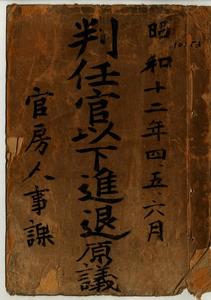 昭和十二年四、五、六月
判任官以下進退原議
官房人事課